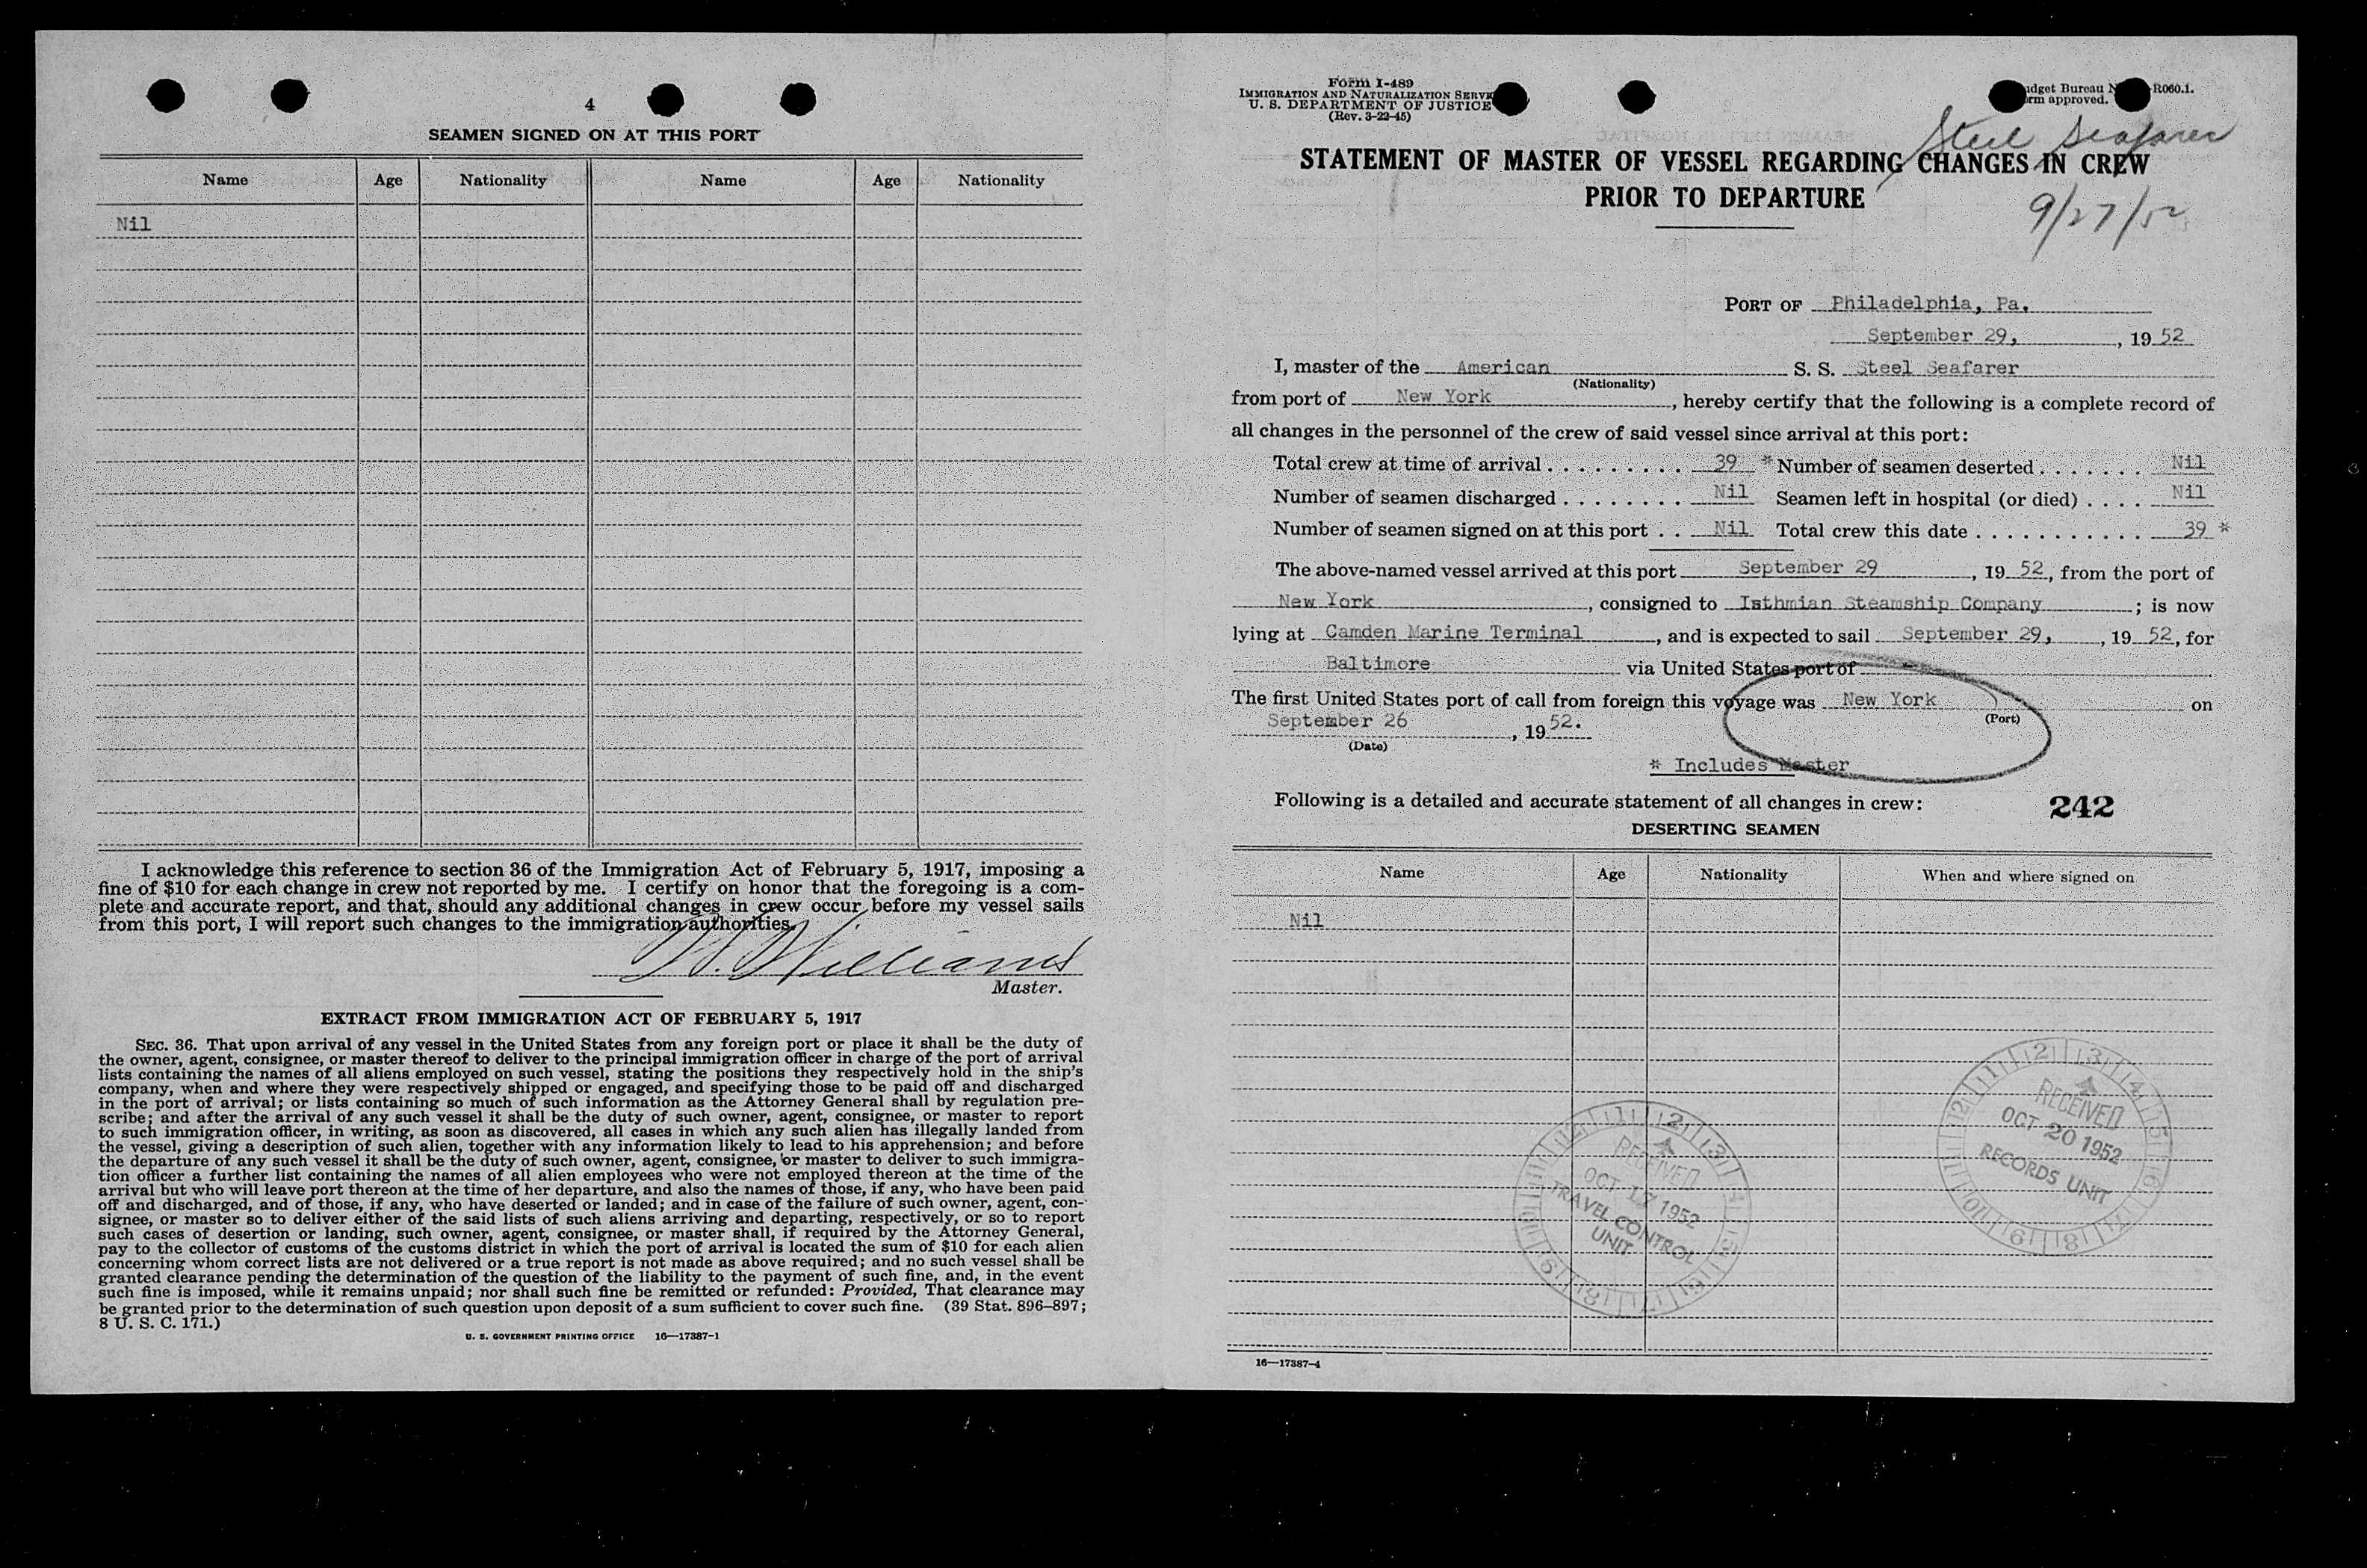 4
SEAMEN SIGNED ON AT THIS PORT
Name Age Nationality Name Age Nationality
Nil
I acknowledge this reference to section 36 of the Immigration Act of February 5, 1917, imposing a
fine of $10 for each change in crew not reported by me. I certify on honor that the foregoing is a com-
plete and accurate report, and that, should any additional changes in crew occur before my vessel sails
from this port, I will report such changes to the immigration authorities.
Williams
Master.
EXTRACT FROM IMMIGRATION ACT OF FEBRUARY 5, 1917
SEC. 36. That upon arrival of any vessel in the United States from any foreign port or place it shall be the duty of
the owner, agent, consignee, or master thereof to deliver to the principal immigration officer in charge of the port of arrival
lists containing the names of all aliens employed on such vessel, stating the positions they respectively hold in the ship's
company, when and where they were respectively shipped or engaged, and specifying those to be paid off and discharged
in the port of arrival; or lists containing so much of such information as the Attorney General shall by regulation pre-
scribe; and after the arrival of any such vessel it shall be the duty of such owner, agent, consignee, or master to report
to such immigration officer, in writing, as soon as discovered, all cases in which any such alien has illegally landed from
the vessel, giving a description of such alien, together with any information likely to lead to his apprehension; and before
the departure of any such vessel it shall be the duty of such owner, agent, consignee, or master to deliver to such immigra-
tion officer a further list containing the names of all alien employees who were not employed thereon at the time of the
arrival but who will leave port thereon at the time of her departure, and also the names of those, if any, who have been paid
off and discharged, and of those, if any, who have deserted or landed; and in case of the failure of such owner, agent, con-
signee, or master so to deliver either of the said lists of such aliens arriving and departing, respectively, or so to report
such cases of desertion or landing, such owner, agent, consignee, or master shall, if required by the Attorney General,
pay to the collector of customs of the customs district in which the port of arrival is located the sum of $10 for each alien
concerning whom correct lists are not delivered or a true report is not made as above required; and no such vessel shall be
granted clearance pending the determination of the question of the liability to the payment of such fine, and, in the event
such fine is imposed, while it remains unpaid; nor shall such fine be remitted or refunded: Provided, That clearance may
be granted prior to the determination of such question upon deposit of a sum sufficient to cover such fine. (39 Stat. 896–897;
8 U. S. C. 171.)
U. S. GOVERNMENT PRINTING OFFICE 16—17387-1
Form I-489
IMMIGRATION AND NATURALIZATION
U. S. DEPARTMENT OF JUSTICE
(Rev. 3-22-45)
Bureau R060.1.
approved.
Steel Seafarer
STATEMENT OF MASTER OF VESSEL REGARDING CHANGES IN CREW
PRIOR TO DEPARTURE
9/27/52
PORT OF Philadelphia, Pa.
September 29, , 19 52
I, master of the American S. S. Steel Seafarer
(Nationality)
from port of New York , hereby certify that the following is a complete record of
all changes in the personnel of the crew of said vessel since arrival at this port:
Total crew at time of arrival . . . . . . . . . 39 * Number of seamen deserted . . . . . . . Nil
Number of seamen discharged . . . . . . . . Nil Seamen left in hospital (or died) . . . . Nil
Number of seamen signed on at this port . . Nil Total crew this date . . . . . . . . . . . 39 *
The above-named vessel arrived at this port September 29 , 19 52, from the port of
New York , consigned to Isthmian Steamship Company ; is now
lying at Camden Marine Terminal , and is expected to sail September 29, , 19 52, for
Baltimore via United States port of -
The first United States port of call from foreign this voyage was New York on
(Port)
September 26 , 19 52.
(Date)
* Includes Master
Following is a detailed and accurate statement of all changes in crew: 242
DESERTING SEAMEN
Name Age Nationality When and where signed on
Nil
RECEIVED
OCT 20 1952
RECORDS UNIT
RECEIVED
OCT 17 1952
TRAVEL CONTROL
UNIT
16—17387-4